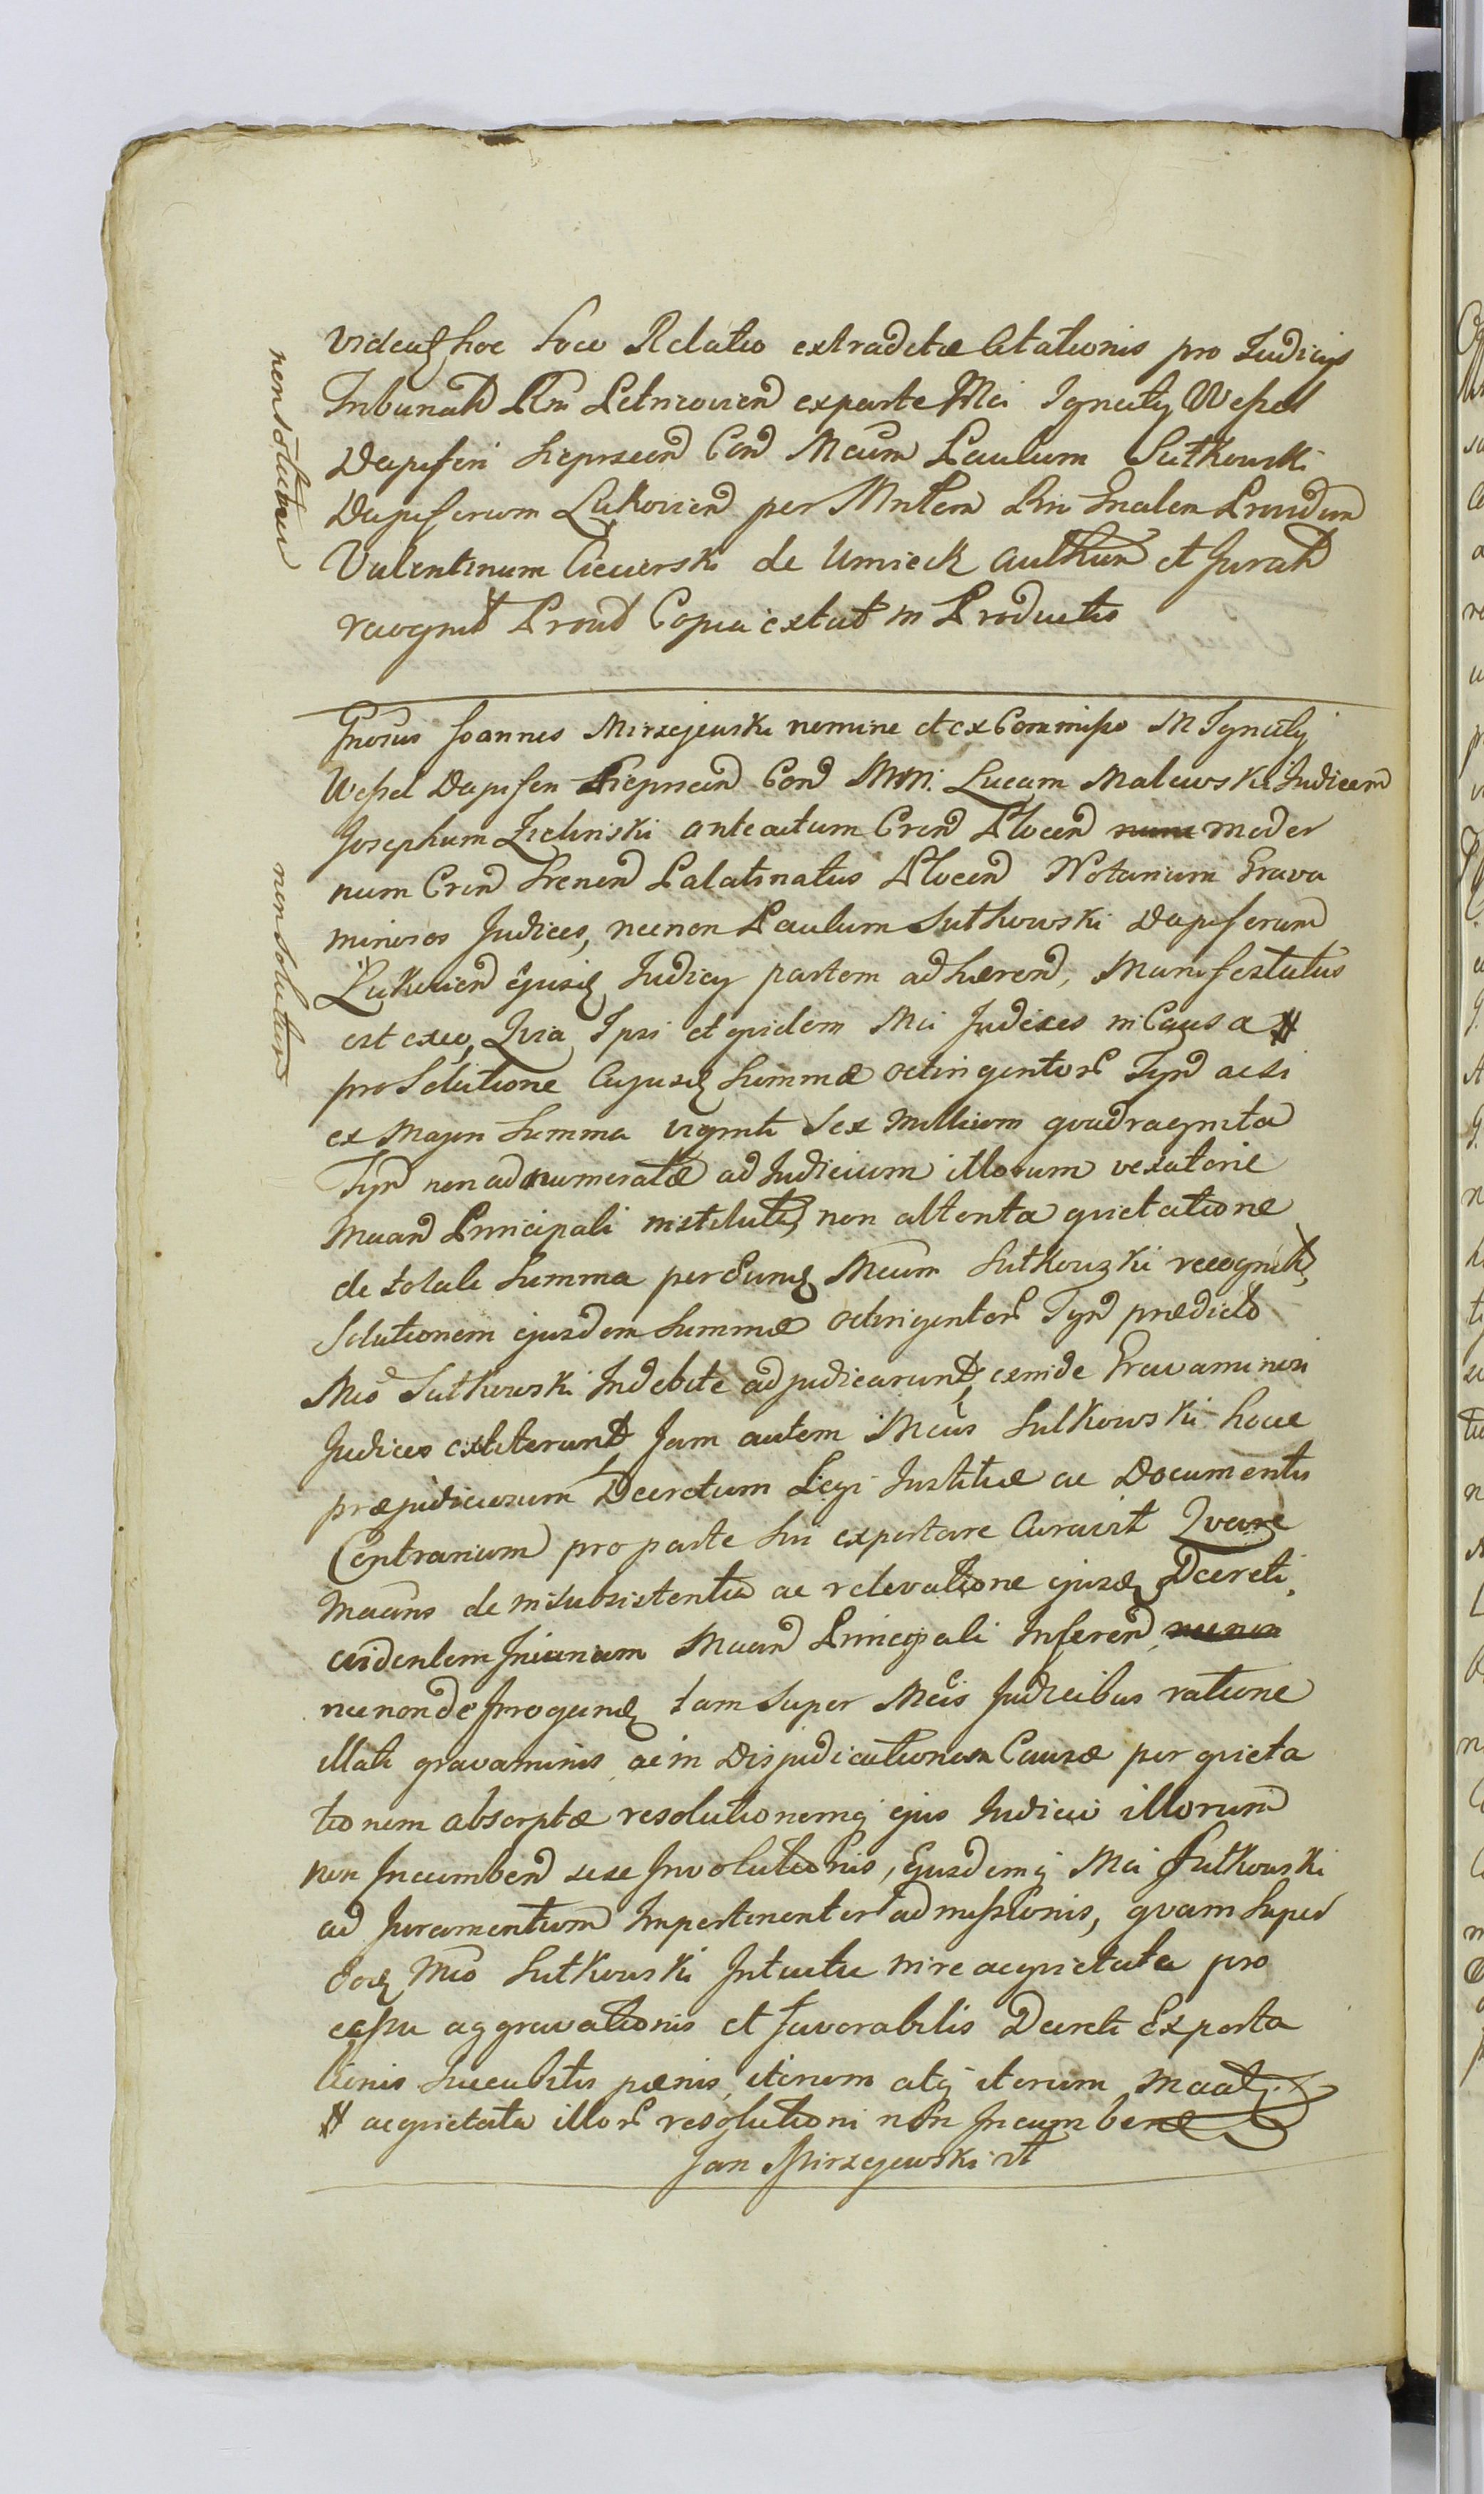 Videat hoc Loco Relatio extraditæ Citationis pro Judicys
Tribunald Rni Petricovien ex parte Mci Ignaty Wessel
Dapiferi Sieprscen Con Mcum Paulum Sutkowski
Dapiferum Lukovien per Mntem Rni Gnalen Providum
Valentinum Ciecierski de Umieck authen et Jurat
recognit Prout Copia extat in Productis
non solutum
Gnosus Joannes Mirzejewski nomine et ex Commisso M Ignaty
Wessel Dapiferi Sieprscen Con MM. Lucam Malewski Judicem
Josephum Zielinski anteactum Cren Plocen nunc moder
num Cren Srenen Palatinatus Plocen Notarium Grava
minosos Judices, necnon Paulum Sutkowski Dapiferum
Lukovien ejusq Judicy partem adhæren, Manifestatus
est exeo, Qvia Ipsi et qvidem Mci Judices in Causa #
pro Solutione Cujusq Summæ octingentor Tyn acsi
ex Majori Summa viginti Sex Millium qvadraginta
Tyn non adnumeratæ ad Judicium illorum vexatorie
Maan Principali institutæ, non attenta qvietatione
de totali Summa per eunq Mcum Sutkowski recognita,
Solutionem ejusdem Summæ octingentor Tyn prædicto
Mco Sutkowski Indebite adjudicarunt, exinde Gravaminosi
Judices extiterunt, Jam autem Mcus Sutkowski hocce
præjudiciosum Decretum Legi Justitiæ ac Documentis
Contrarium pro parte Sui exportare Curavit Qvare
Maans de insubsistentia ac relevatione ejusq Decreti,
evidentem Injuriam Maan Principali Inferen, necnon
necnon de Irrogan tam super Mcis Judicibus ratione
illati gravaminis ac in Disjudicationem Causæ per qvieta
tionem absorptæ resolutionemq ejus Judicio illorum
non Incumben sese Involutionis, Ejusdemq Mci Sutkowski
ad Juramentum Impertinenter admissionis, qvam super
eoq Mco Sutkowski Intuitu in re acqvietata pro
cessu aggravationis et favorabilis Decreti Exporta
tionis Succubitis pænis, iterum atq iterum Maat.
# acqvietata illor resolutioni non Incumbene
Jan Mirzejewski mp
non solutum